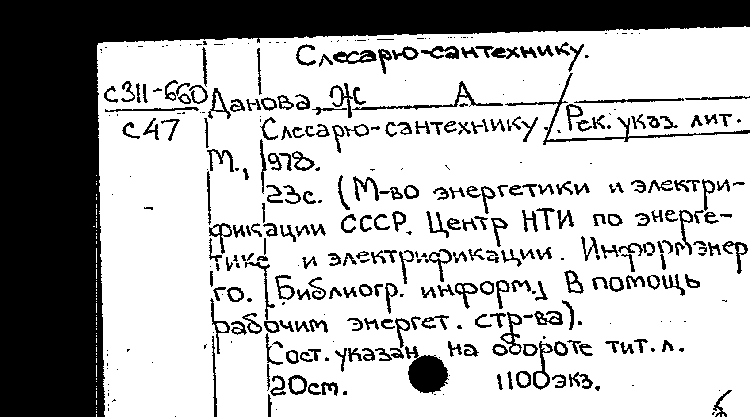 Слесарю-сантехнику.
С311-660 Данова, Ж А
С47 Слесарю-сантехнику. Рек. указ. лит.
М., 1978.
23с. (М-во энергетики и электри-
фикации СССР. Центр НТИ по энерге-
тике и электрификации. Информэнер
го. Библиогр. информ. В помощь
рабочим энергет. стр-ва).
Сост. указан на обороте тит. л.
20см. 1100экз.